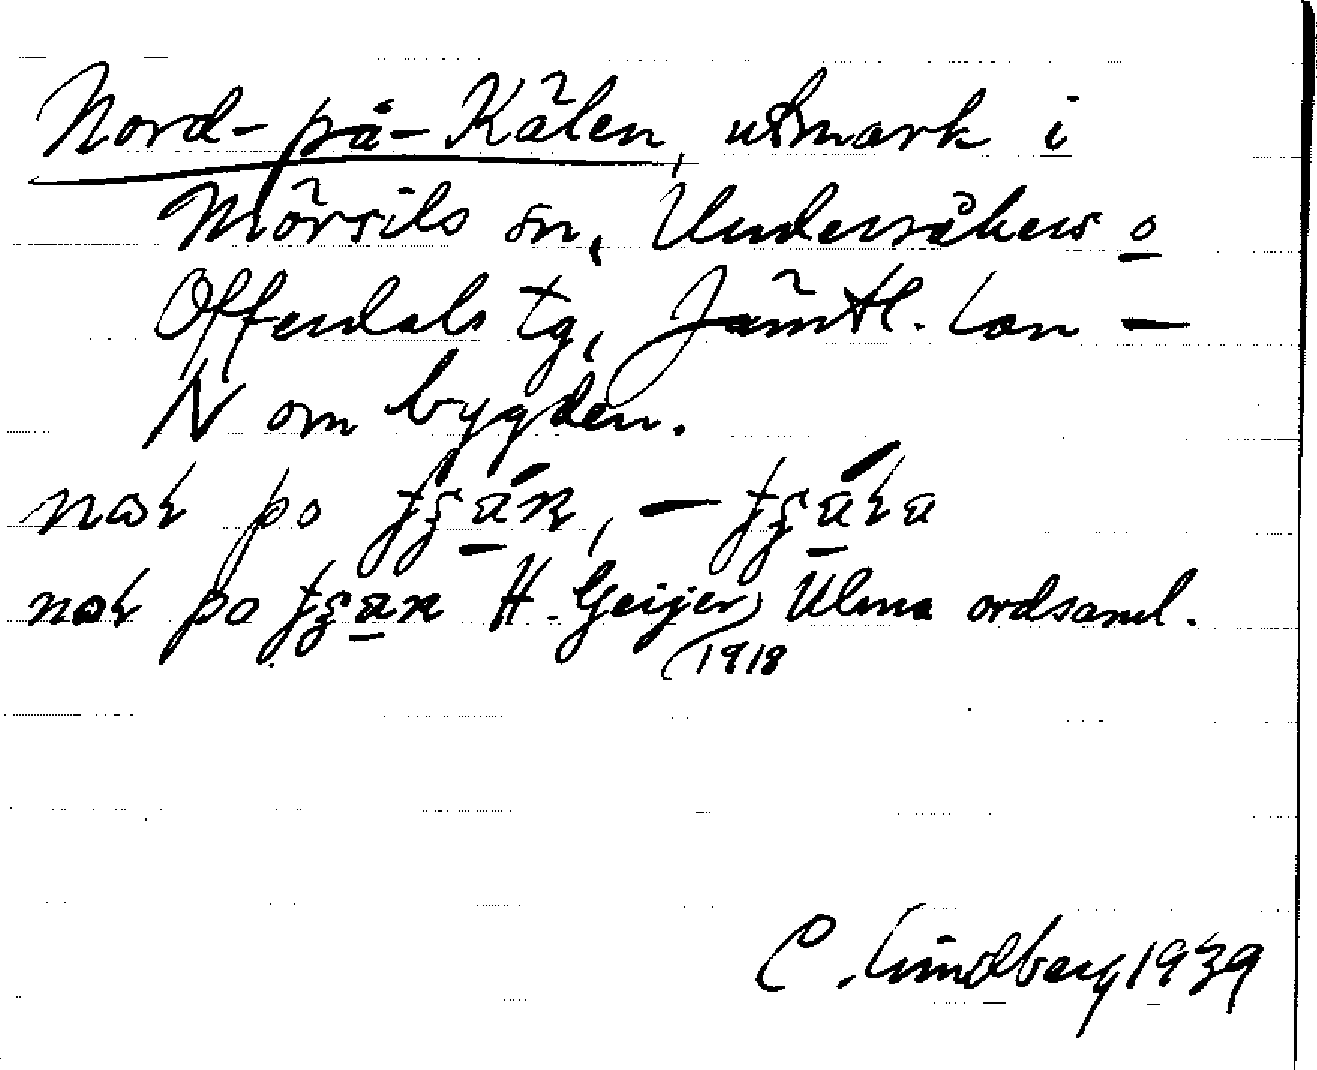 Nord-på-Kälen, utmark i
Mörsils sn, Undersåkers o
Offerdals tg, Jämtl. län –
N om bygden.
po
po H. Geijer, Ulma ordsaml.
1918
C. Lindberg 1939